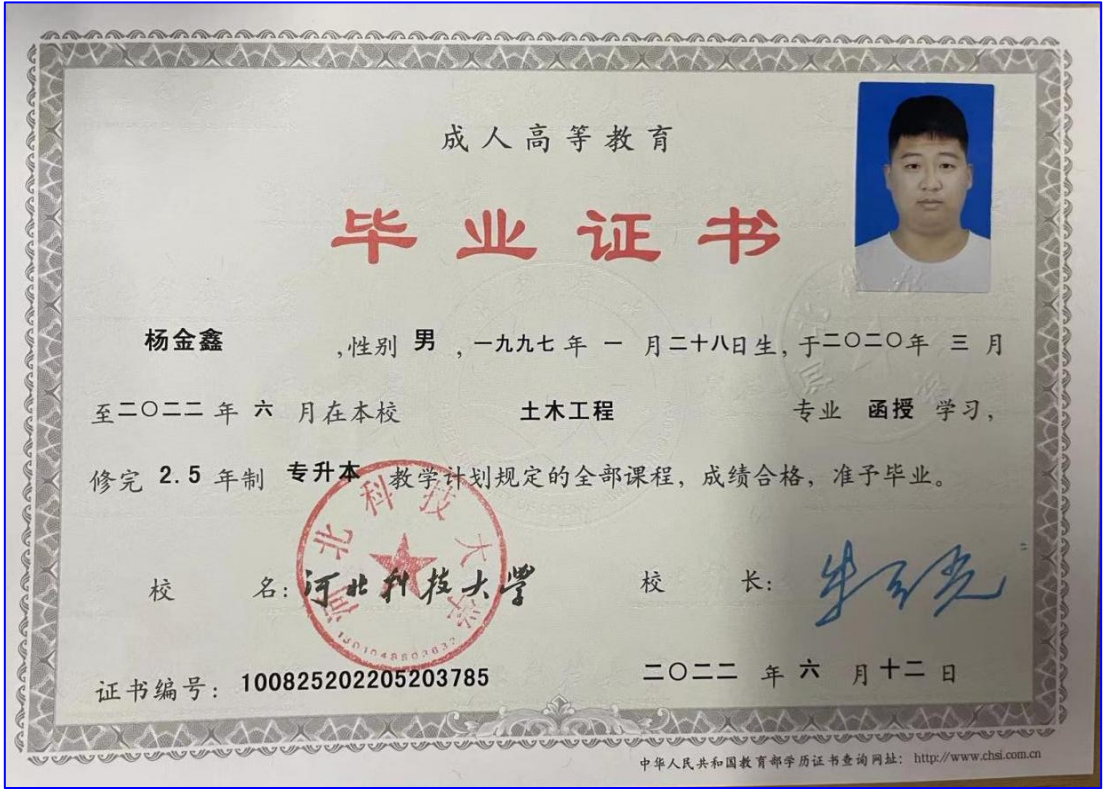 成人高等教育
毕业证书
杨金鑫 ,性别 男 ,一九九七 年 一 月二十八日生, 于二〇二〇年 三 月
至二〇二二 年 六 月在本校 土木工程 专业 函授 学习,
修完 2.5 年制 专升本 教学计划规定的全部课程, 成绩合格, 准予毕业。
河北科技大学
校 名: 河北科技大学 校 长:
证书编号: 100825202205203785 二〇二二 年 六 月十二 日
中华人民共和国教育部学历证书查询网址: http://www.chsi.com.cn